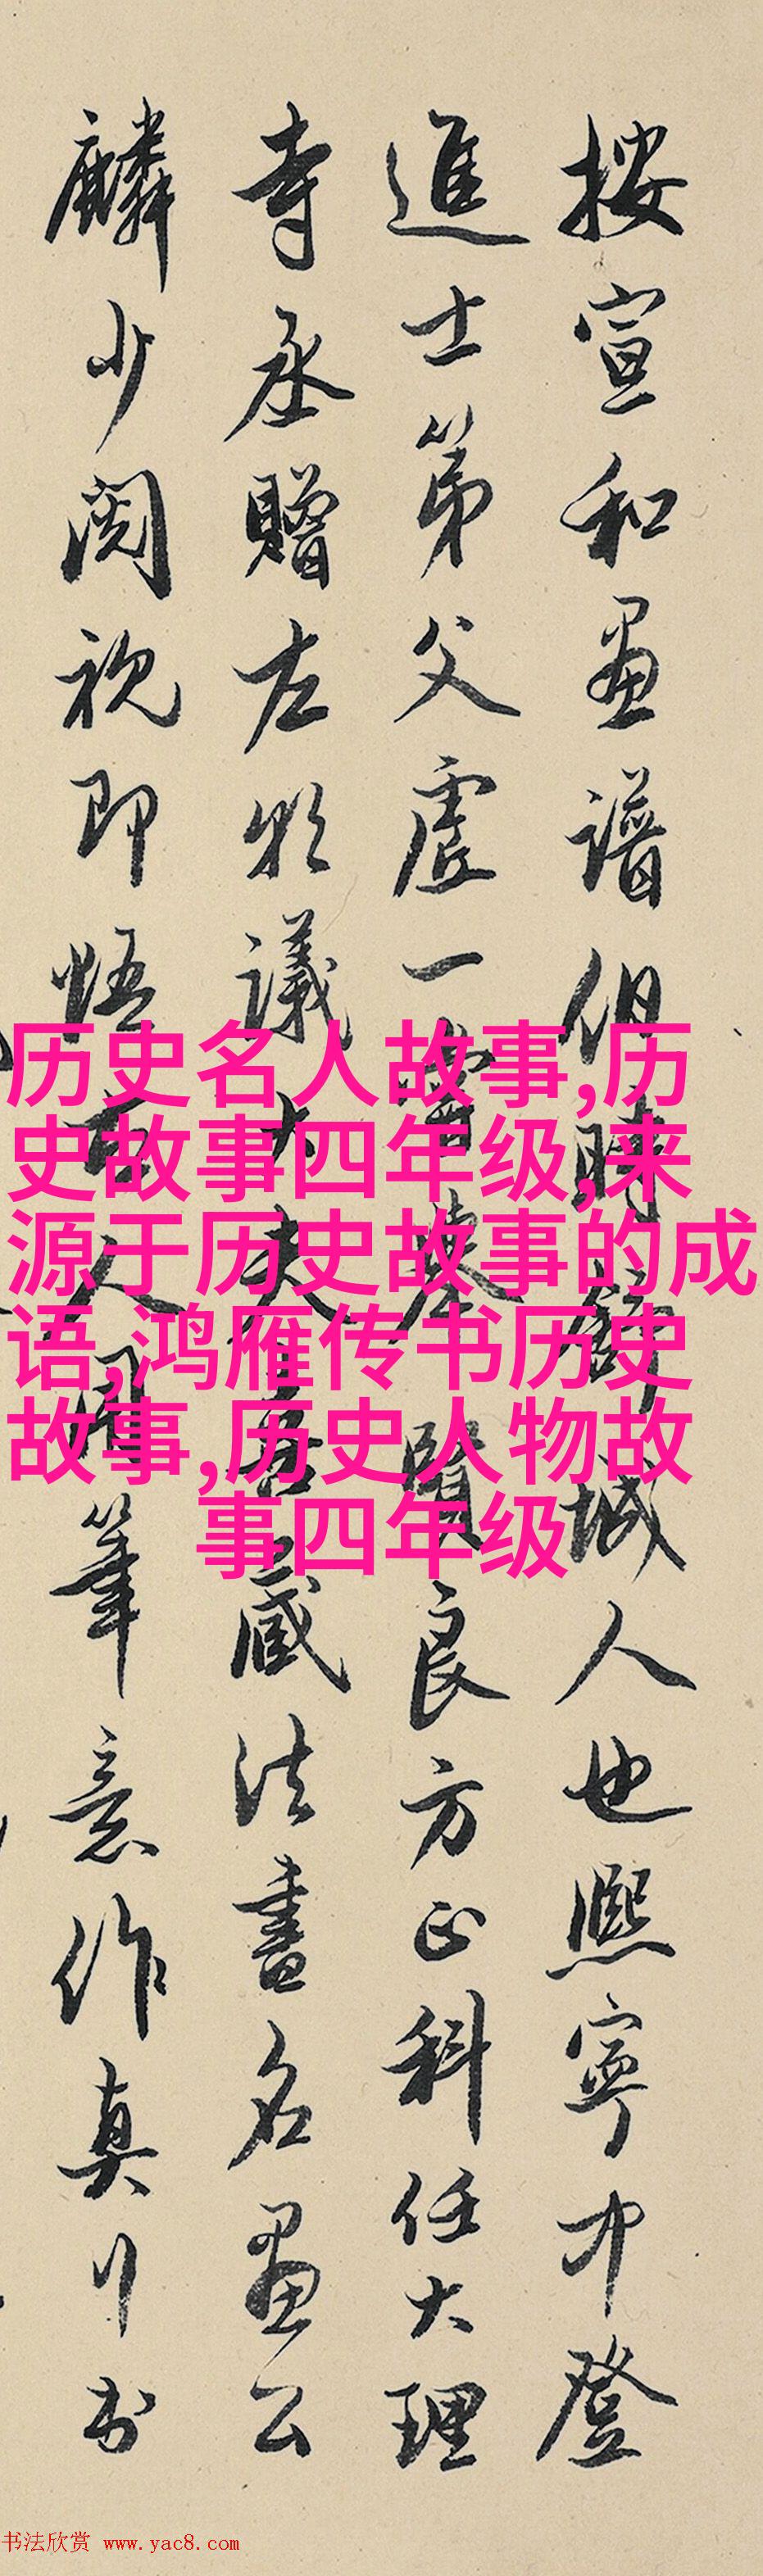 按宣和画谱伯时舒城人也熙寧中登
進士第父虚一嘗舉賢良方正科任大理
寺丞贈左朝議大夫喜藏法書名画公
麟少閲視即悟古人用筆意作真行书
历史名人故事,历
史故事四年级,来
源于历史故事的成
语,鸿雁传书历史
故事,历史人物故
事四年级
书法欣赏 www.yac8.com